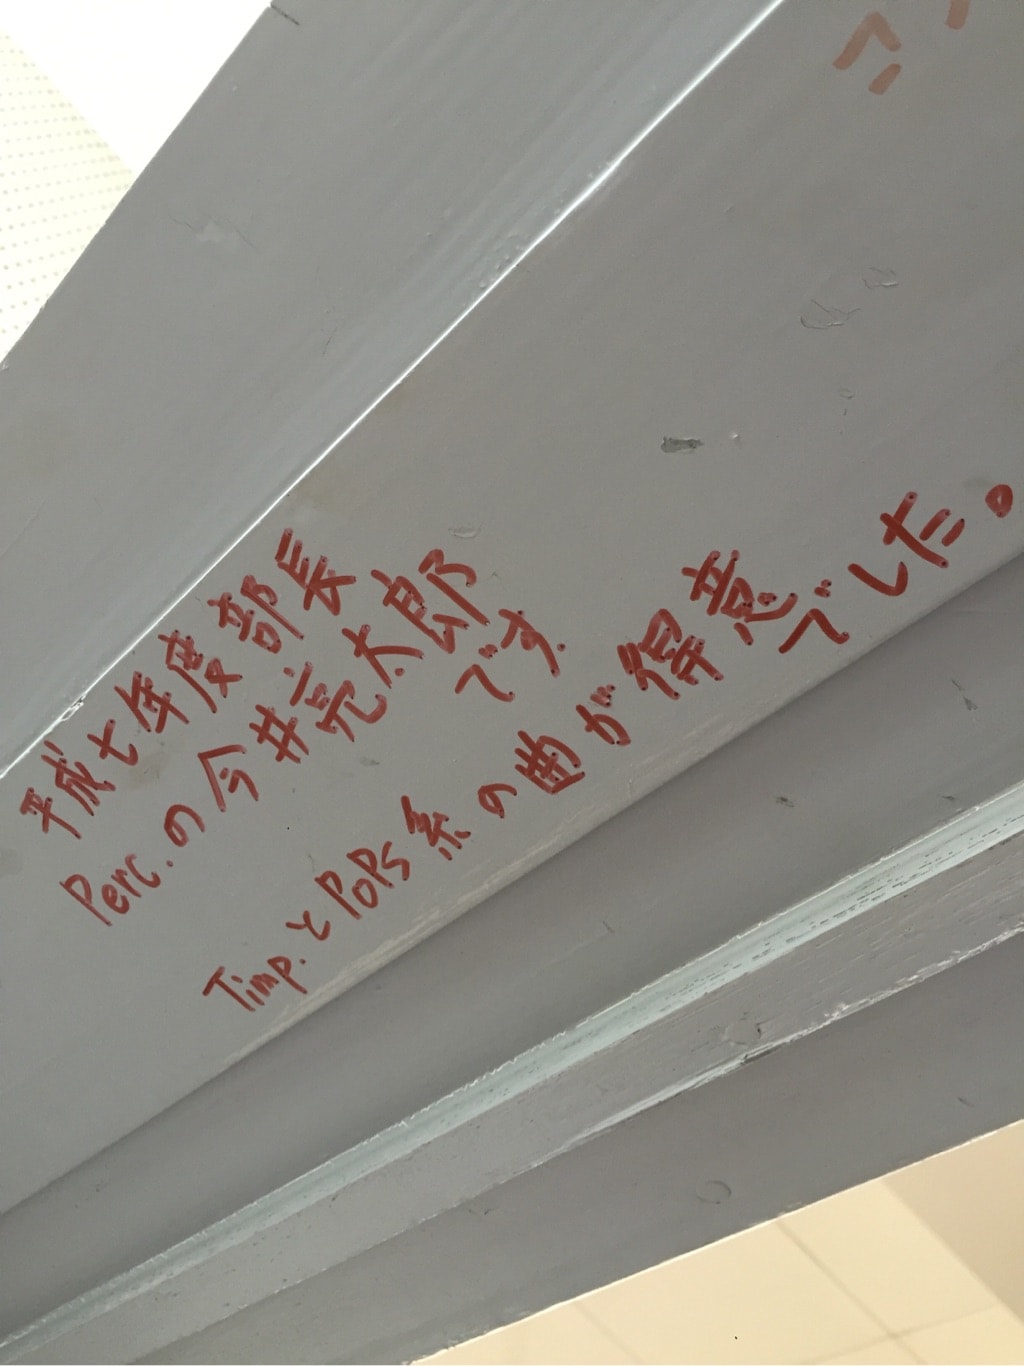 平成七年度部長
Perc.の今井亮太郎
です.
Timp.とPoPs系の曲が得意
でした。